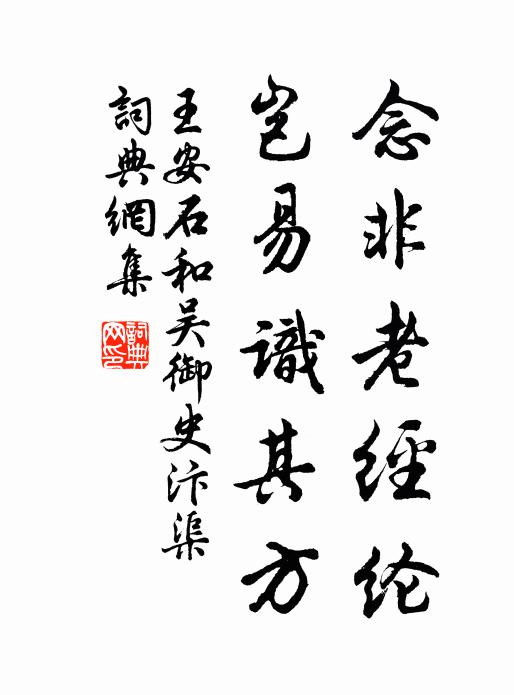 念非老經纶
岂易識其方
王安石和吴御史汴渠
詞典網集
詞典網印